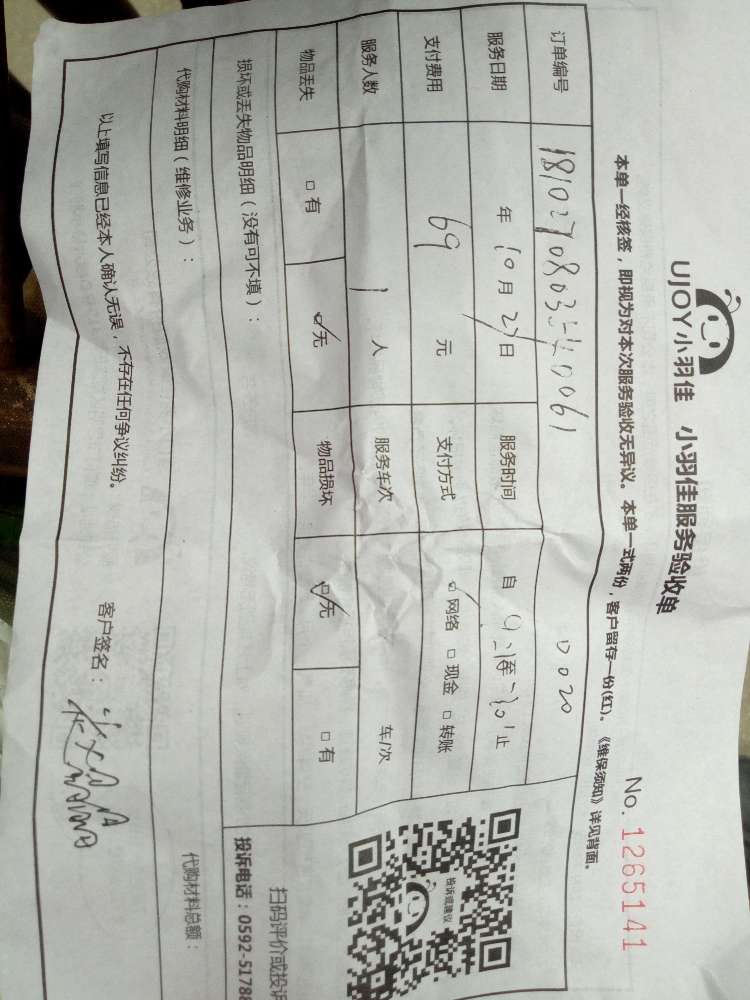 UJOY小羽佳 小羽佳服务验收单
No. 1265141
本单一经核签，即视为对本次服务验收无异议。本单一式两份，客户留存一份(红)。《维保须知》详见背面。
订单编号
服务日期 年 10月 27日 服务时间 自 止
支付费用 69 元 支付方式 ☑网络 □现金 □转账
服务人数 1 人 服务车次 车/次
物品丢失 □有 ☑无 物品损坏 ☑无 □有
损坏或丢失物品明细（没有可不填）：
代购材料明细（维修业务）： 代购材料总额：
以上填写信息已经本人确认无误，不存在任何争议纠纷。 客户签名：
投诉或建议
扫码评价或投诉
投诉电话：0592-5178